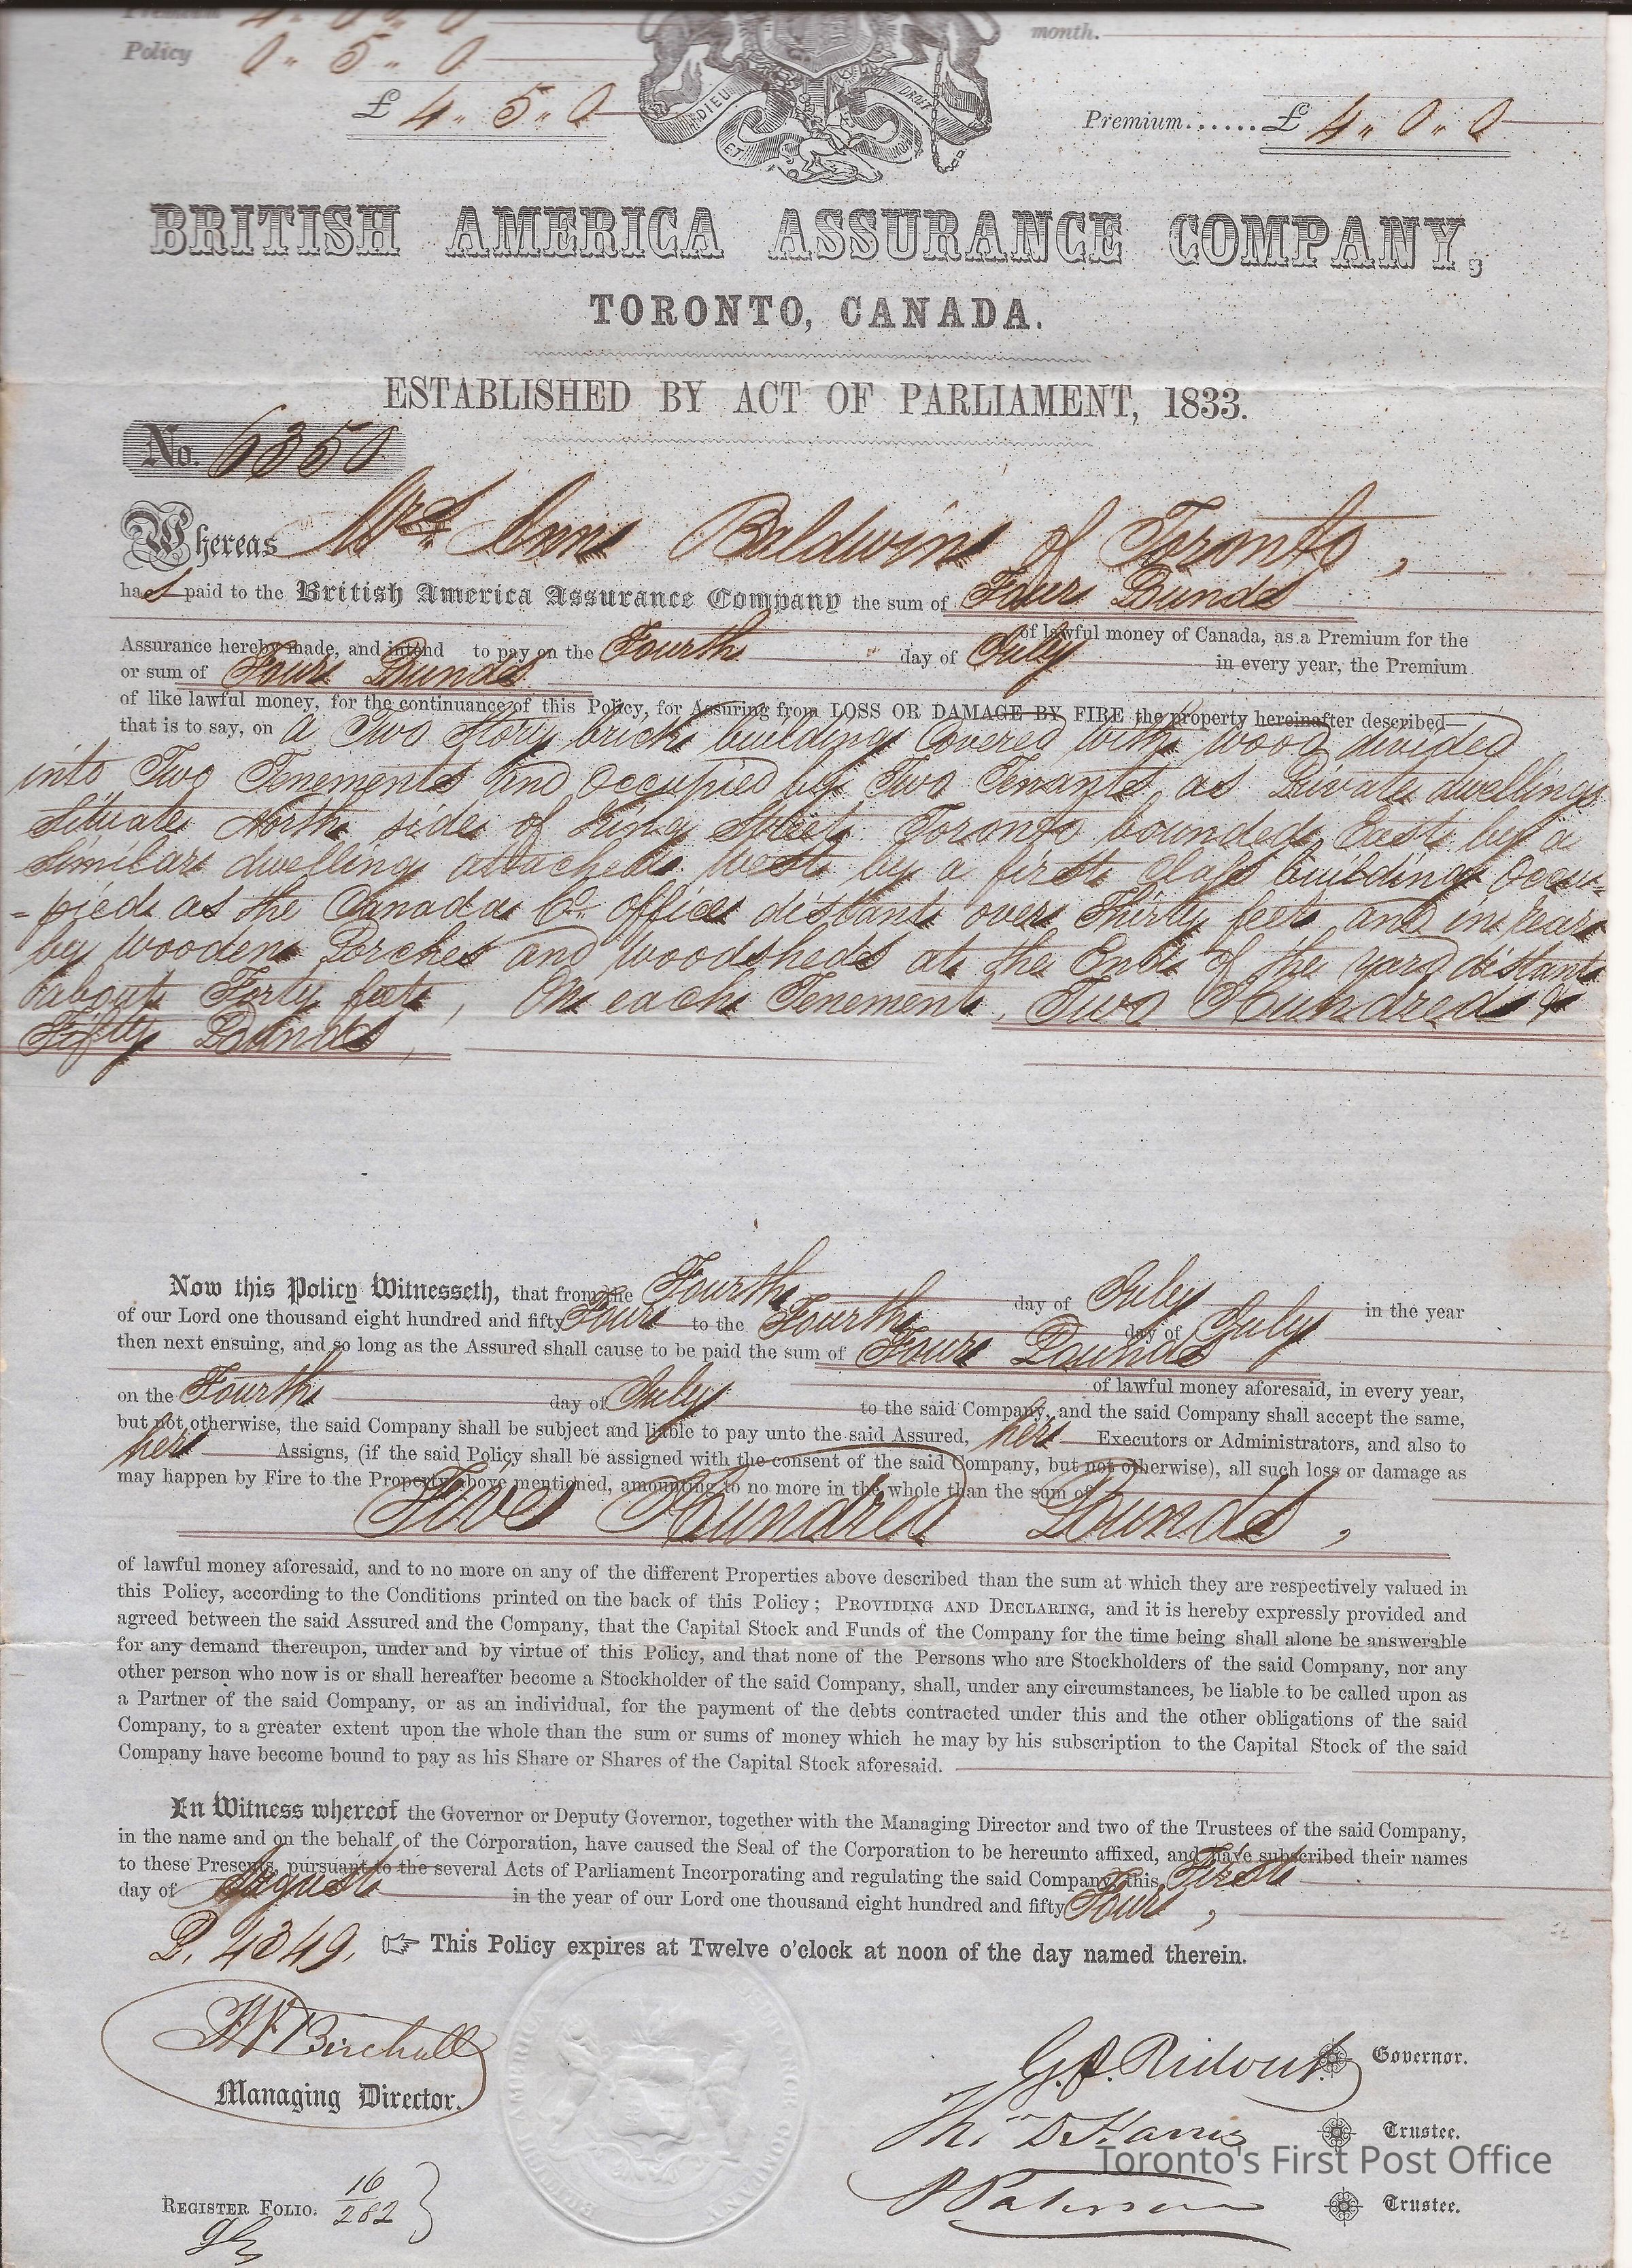 Premium 4 " 0 " 0
month.
Policy 0 " 5 " 0
£ 4 " 5 " 0
DIEU ET MON DROIT
Premium...... £ 4 " 0 " 0
BRITISH AMERICA ASSURANCE COMPANY,
TORONTO, CANADA.
ESTABLISHED BY ACT OF PARLIAMENT, 1833.
No. 6350
Whereas Mrs. Ann Baldwin of Toronto,
has paid to the British America Assurance Company the sum of Four Pounds
of lawful money of Canada, as a Premium for the
Assurance hereby made, and intend to pay on the Fourth day of July in every year, the Premium
or sum of Four Pounds
of like lawful money, for the continuance of this Policy, for Assuring from LOSS OR DAMAGE BY FIRE the property hereinafter described
that is to say, on a Two Story brick building Covered with wood divided
into Two Tenements and Occupied by Two Tenants, as Private dwellings
Situate North side of King Street Toronto bounded East by a
similar dwelling attached West by a first Class building Occu-
-pied as the Canada Co. office distant over Thirty feet and in rear
by wooden Porches and woodsheds at the End of the yard distant
about Forty feet, On each Tenement, Two Hundred &
Fifty Pounds,
Now this Policy Witnesseth, that from the Fourth day of July in the year
of our Lord one thousand eight hundred and fifty Four to the Fourth day of July
then next ensuing, and so long as the Assured shall cause to be paid the sum of Four Pounds
of lawful money aforesaid, in every year,
on the Fourth day of July to the said Company, and the said Company shall accept the same,
but not otherwise, the said Company shall be subject and liable to pay unto the said Assured, her Executors or Administrators, and also to
her Assigns, (if the said Policy shall be assigned with the consent of the said Company, but not otherwise), all such loss or damage as
may happen by Fire to the Property above mentioned, amounting to no more in the whole than the sum of
Five Hundred Pounds,
of lawful money aforesaid, and to no more on any of the different Properties above described than the sum at which they are respectively valued in
this Policy, according to the Conditions printed on the back of this Policy; PROVIDING AND DECLARING, and it is hereby expressly provided and
agreed between the said Assured and the Company, that the Capital Stock and Funds of the Company for the time being shall alone be answerable
for any demand thereupon, under and by virtue of this Policy, and that none of the Persons who are Stockholders of the said Company, nor any
other person who now is or shall hereafter become a Stockholder of the said Company, shall, under any circumstances, be liable to be called upon as
a Partner of the said Company, or as an individual, for the payment of the debts contracted under this and the other obligations of the said
Company, to a greater extent upon the whole than the sum or sums of money which he may by his subscription to the Capital Stock of the said
Company have become bound to pay as his Share or Shares of the Capital Stock aforesaid.
In Witness whereof the Governor or Deputy Governor, together with the Managing Director and two of the Trustees of the said Company,
in the name and on the behalf of the Corporation, have caused the Seal of the Corporation to be hereunto affixed, and have subscribed their names
to these Presents, pursuant to the several Acts of Parliament Incorporating and regulating the said Company, this First
day of August in the year of our Lord one thousand eight hundred and fifty Four,
P. 4349. ☞ This Policy expires at Twelve o'clock at noon of the day named therein.
Birchall
Managing Director.
G. P. Ridout Governor.
Thos. D Harris Trustee.
Toronto's First Post Office
P Paterson Trustee.
REGISTER FOLIO. 16/282